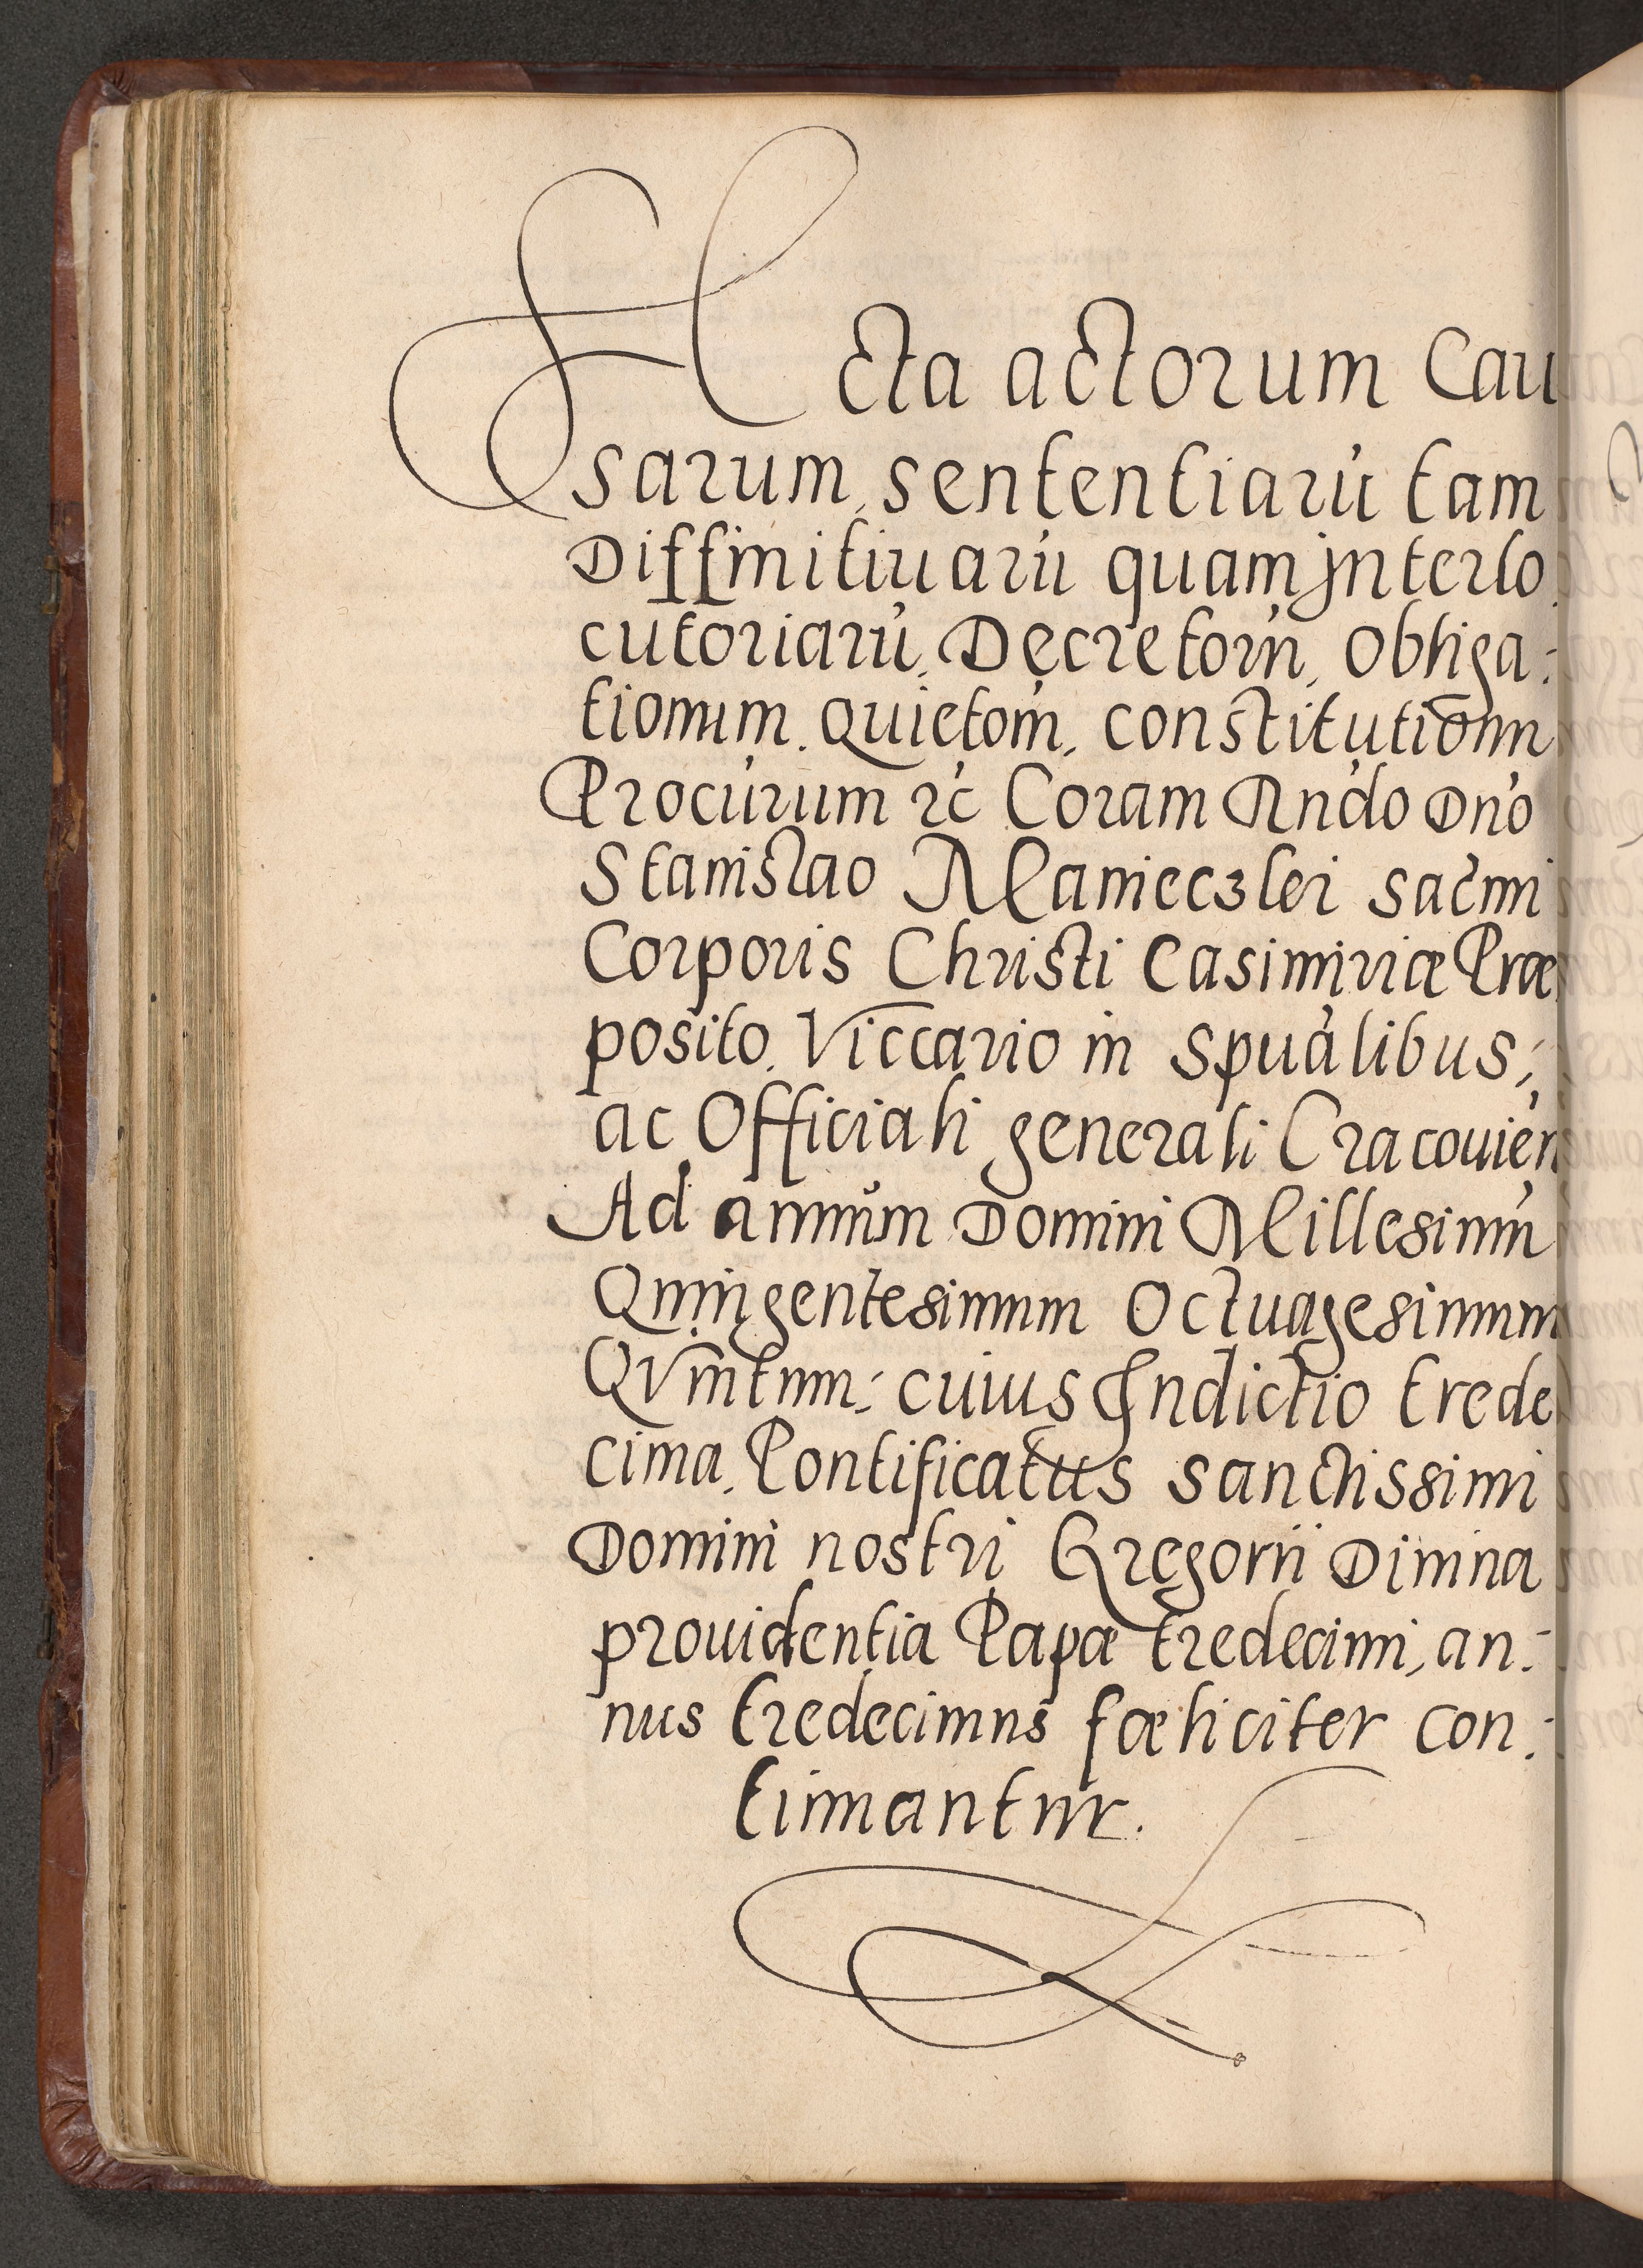 Acta actorum Cau
sarum, sententiarū tam
Diffinitiuarū quam jnterlo
cutoriarū, Decretorū, Obliga:
tionum. Quietom̄, constitutionū
Procūrum rc̄ Coram Rndo Dno
Stanislao Manieczlei sacmi
Corporis Christi Casimiriæ Præ
posito. Viccario in spūalibus;
ac Officiali generali Cracouien̄
Ad annum Domini Millesimū
Quingentesimum Octuagesimum
Qvintum: cuius Indictio trede
cima. Pontificatus sanctissimi
Domini nostri Gregorii Diuina
prouidentia Papæ tredecimi, an:
nus tredecimus fæliciter con:
tinuantur.